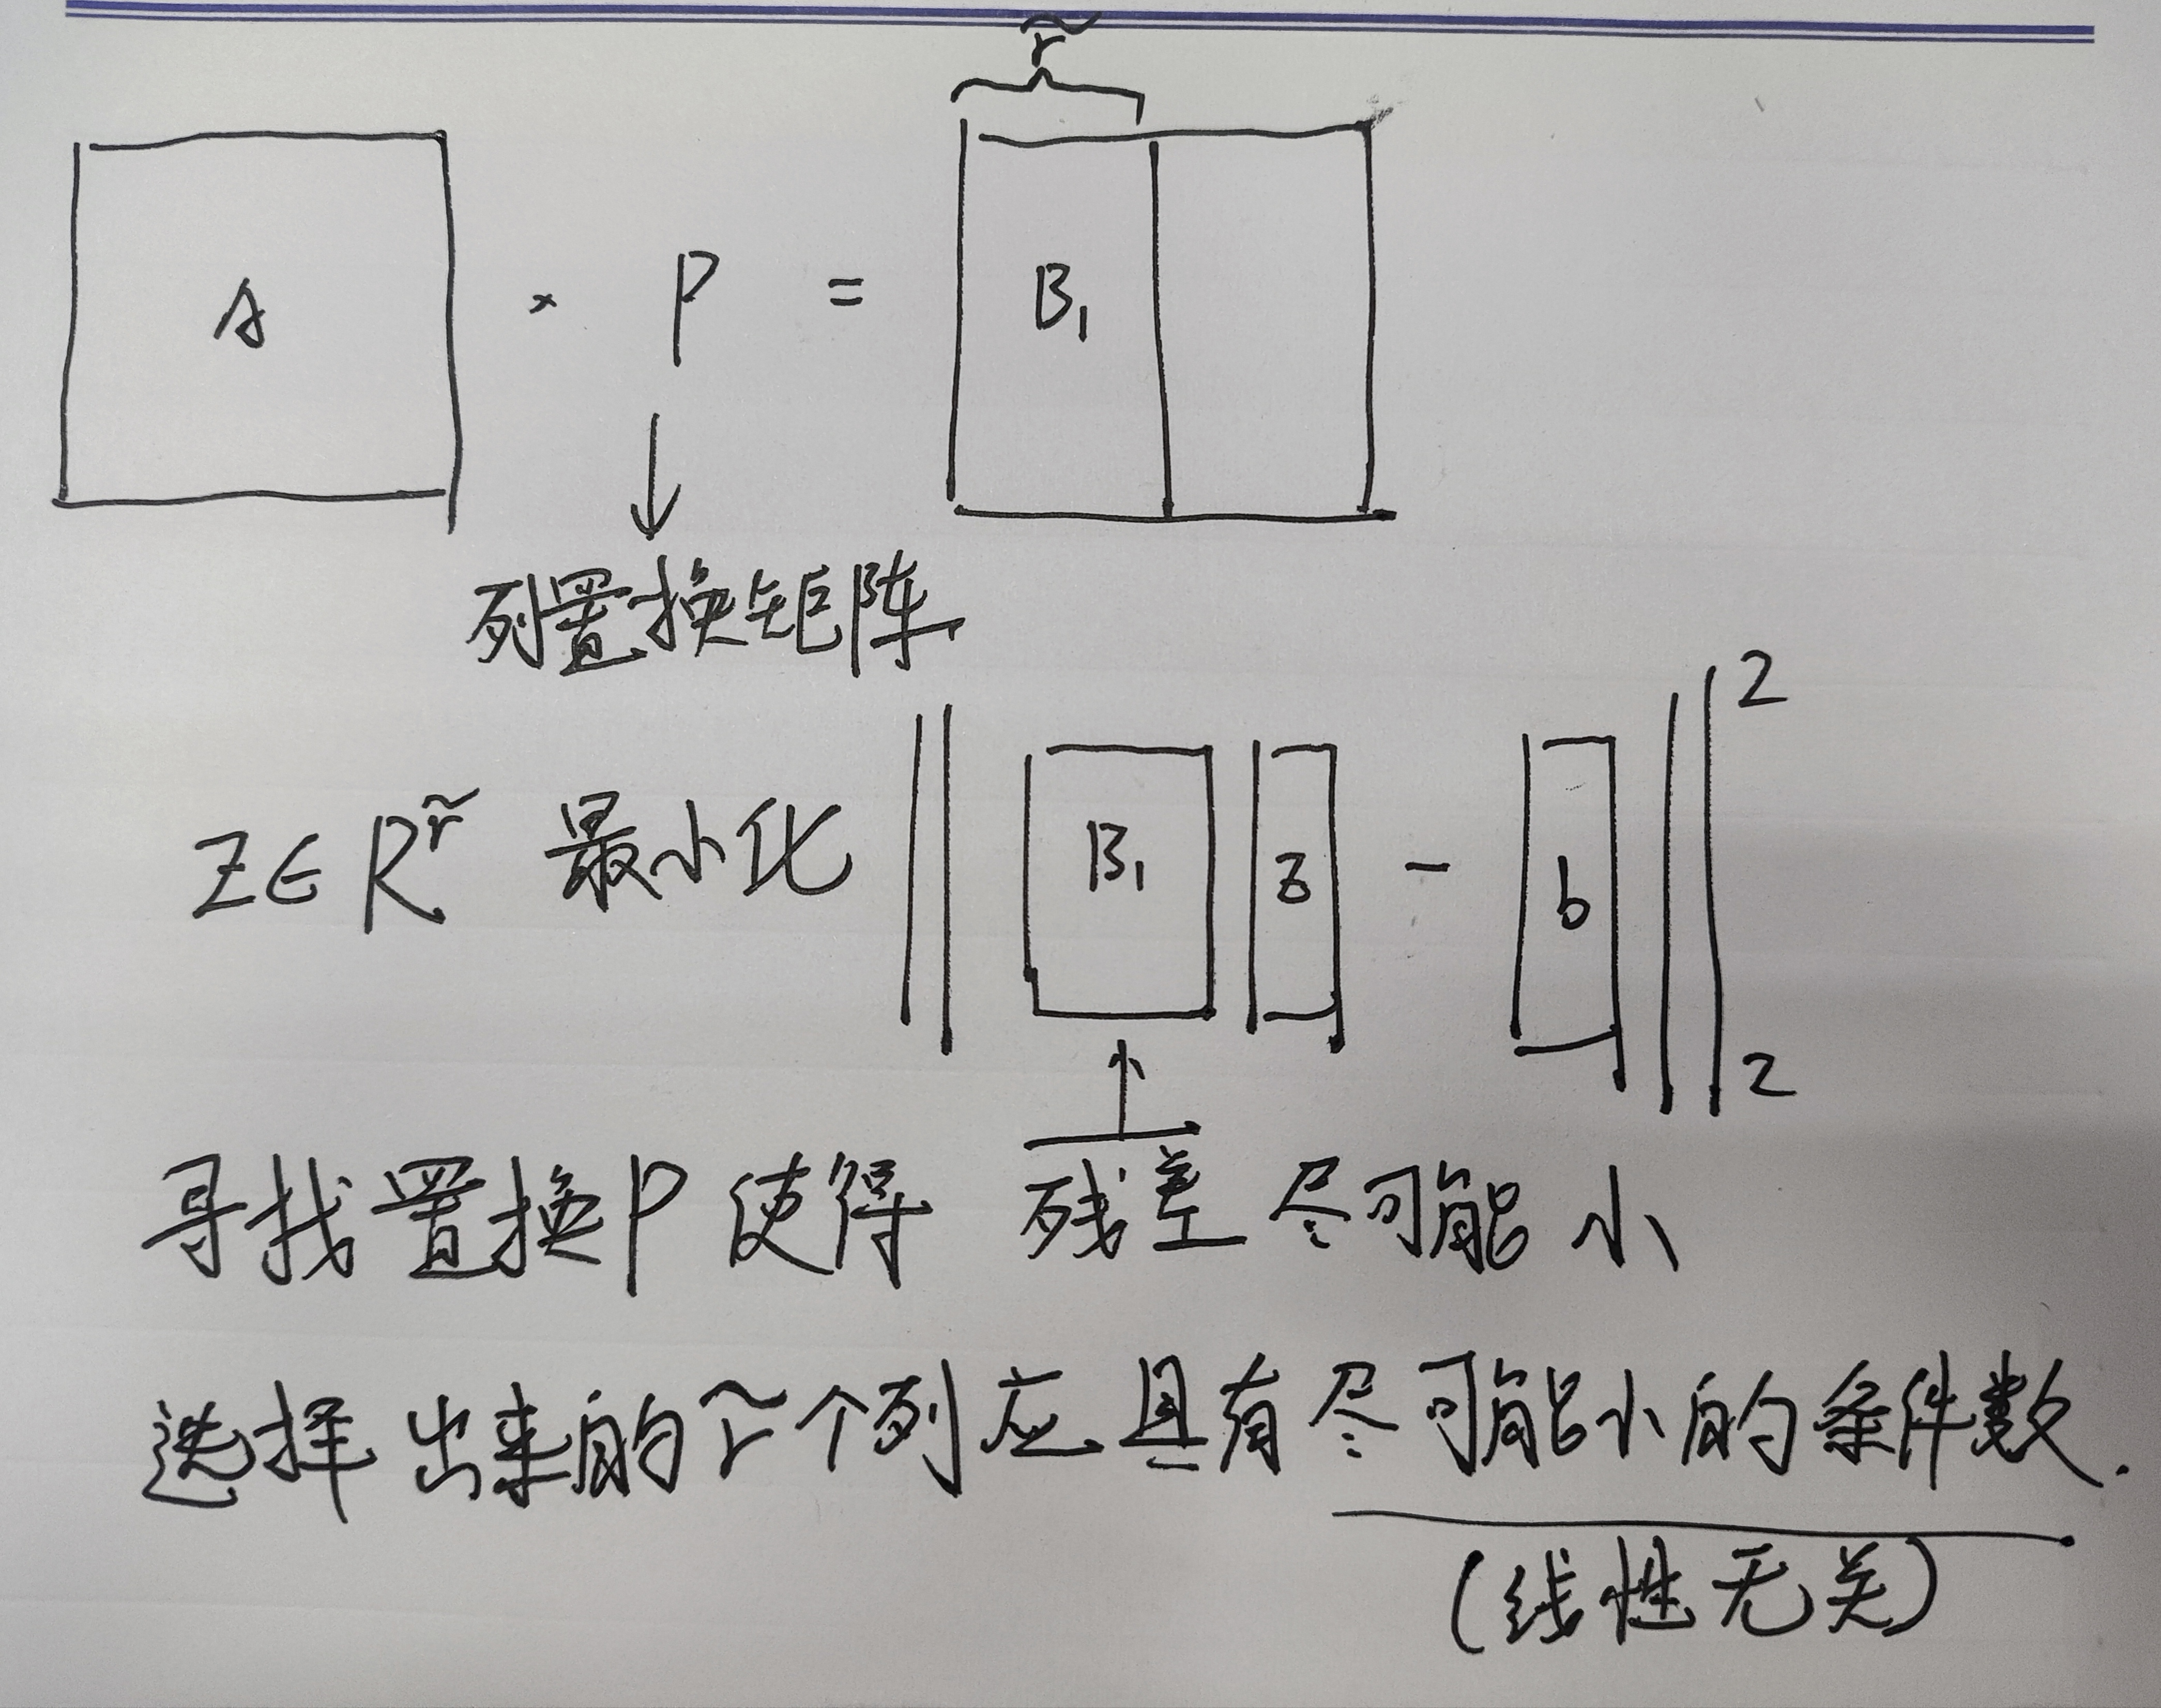 r̃
A × P = B₁
列置换矩阵
z∈R^r̃ 最小化 || B₁ z - b ||²₂
寻找置换P使得 残差尽可能小
选择出来的r̃个列应具有尽可能小的条件数.
(线性无关)